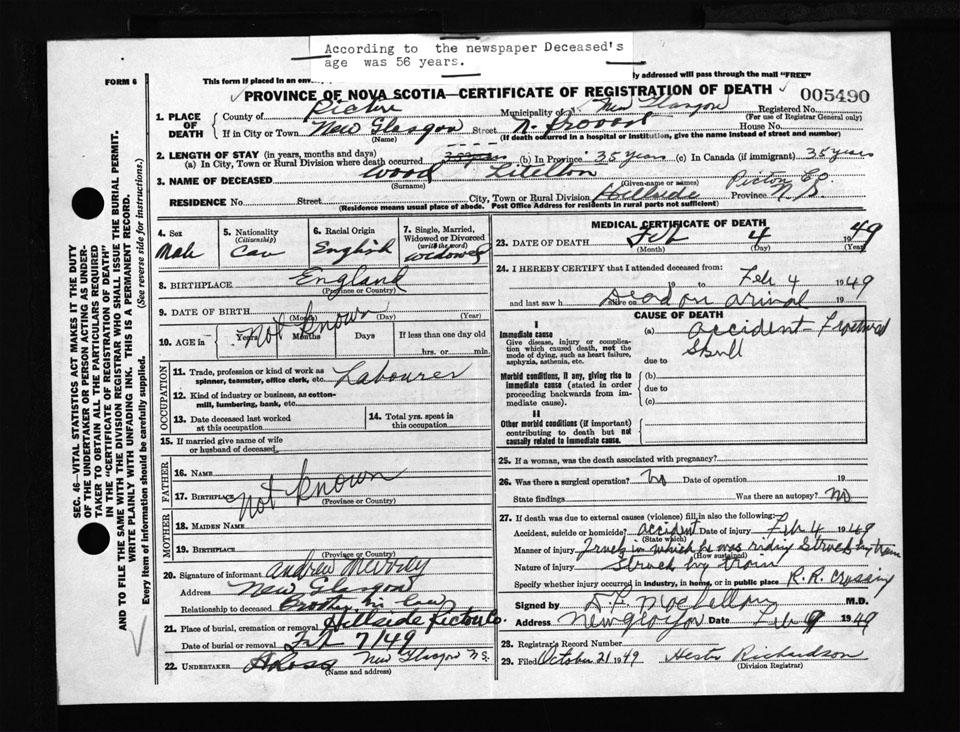 According to the newspaper Deceased's
age was 56 years.
FORM 6
This form if placed in an
ly addressed will pass through the mail "FREE"
PROVINCE OF NOVA SCOTIA—CERTIFICATE OF REGISTRATION OF DEATH
005490
1. PLACE OF DEATH
County of Pictou
Municipality of New Glasgow
Registered No.
(For use of Registrar General only)
If in City or Town New Glasgow Street N. Provost House No.
(Name) (If death occurred in a hospital or institution, give the name instead of street and number)
2. LENGTH OF STAY (in years, months and days)
(a) In City, Town or Rural Division where death occurred 35 years (b) In Province 35 years (c) In Canada (if immigrant) 35 years
3. NAME OF DECEASED Wood
(Surname) (Given name or names)
RESIDENCE No. Street City, Town or Rural Division Hillside Pictou Co. Province N S
(Residence means usual place of abode. Post Office Address for residents in rural parts not sufficient)
4. Sex
Male
5. Nationality
(Citizenship)
Can
6. Racial Origin
English
7. Single, Married,
Widowed or Divorced
(write the word)
Widowed
8. BIRTHPLACE England
(Province or Country)
9. DATE OF BIRTH
(Month) (Day) (Year)
10. AGE in Years Months Days If less than one day old
hrs. or min.
Not Known
OCCUPATION
11. Trade, profession or kind of work as
spinner, teamster, office clerk, etc. Labourer
12. Kind of industry or business, as cotton-
mill, lumbering, bank, etc.
13. Date deceased last worked
at this occupation
14. Total yrs. spent in
this occupation
15. If married give name of wife
or husband of deceased
FATHER
16. NAME
17. BIRTHPLACE
(Province or Country)
Not Known
MOTHER
18. MAIDEN NAME
19. BIRTHPLACE
(Province or Country)
20. Signature of informant Andrew
Address New Glasgow
Relationship to deceased Brother in law
21. Place of burial, cremation or removal Hillside Pictou Co.
Date of burial or removal Feb 7/49
22. UNDERTAKER A Ross New Glasgow N.S.
(Name and address)
MEDICAL CERTIFICATE OF DEATH
23. DATE OF DEATH Feb 4 1949
(Month) (Day) (Year)
24. I HEREBY CERTIFY that I attended deceased from:
19 to Feb 4 1949
and last saw h alive on Dead on arival 19
CAUSE OF DEATH
I
Immediate cause
Give disease, injury or complica-
tion which caused death, not the
mode of dying, such as heart failure,
asphyxia, asthenia, etc.
(a) Accident—
Skull
due to
Morbid conditions, if any, giving rise to
immediate cause (stated in order
proceeding backwards from im-
mediate cause).
(b)
due to
(c)
II
Other morbid conditions (if important)
contributing to death but not
causally related to immediate cause.
25. If a woman, was the death associated with pregnancy?
26. Was there a surgical operation? No Date of operation 19
State findings Was there an autopsy? No
27. If death was due to external causes (violence) fill in also the following:
Accident, suicide or homicide? accident Date of injury Feb 4 1949
(State which)
Manner of injury Truck in which he was riding Struck by train
(How sustained)
Nature of injury Struck by train
Specify whether injury occurred in industry, in home, or in public place R.R. Crossing
Signed by M.D.
Address New Glasgow Date Feb 9 1949
28. Registrar's Record Number
29. Filed October 21 1949 Hester Richardson
(Division Registrar)
SEC. 46—VITAL STATISTICS ACT MAKES IT THE DUTY
OF THE UNDERTAKER OR PERSON ACTING AS UNDER-
TAKER TO OBTAIN ALL THE PARTICULARS REQUIRED
IN THE "CERTIFICATE OF REGISTRATION OF DEATH"
AND TO FILE THE SAME WITH THE DIVISION REGISTRAR WHO SHALL ISSUE THE BURIAL PERMIT.
WRITE PLAINLY WITH UNFADING INK. THIS IS A PERMANENT RECORD.
Every item of information should be carefully supplied. (See reverse side for instructions.)